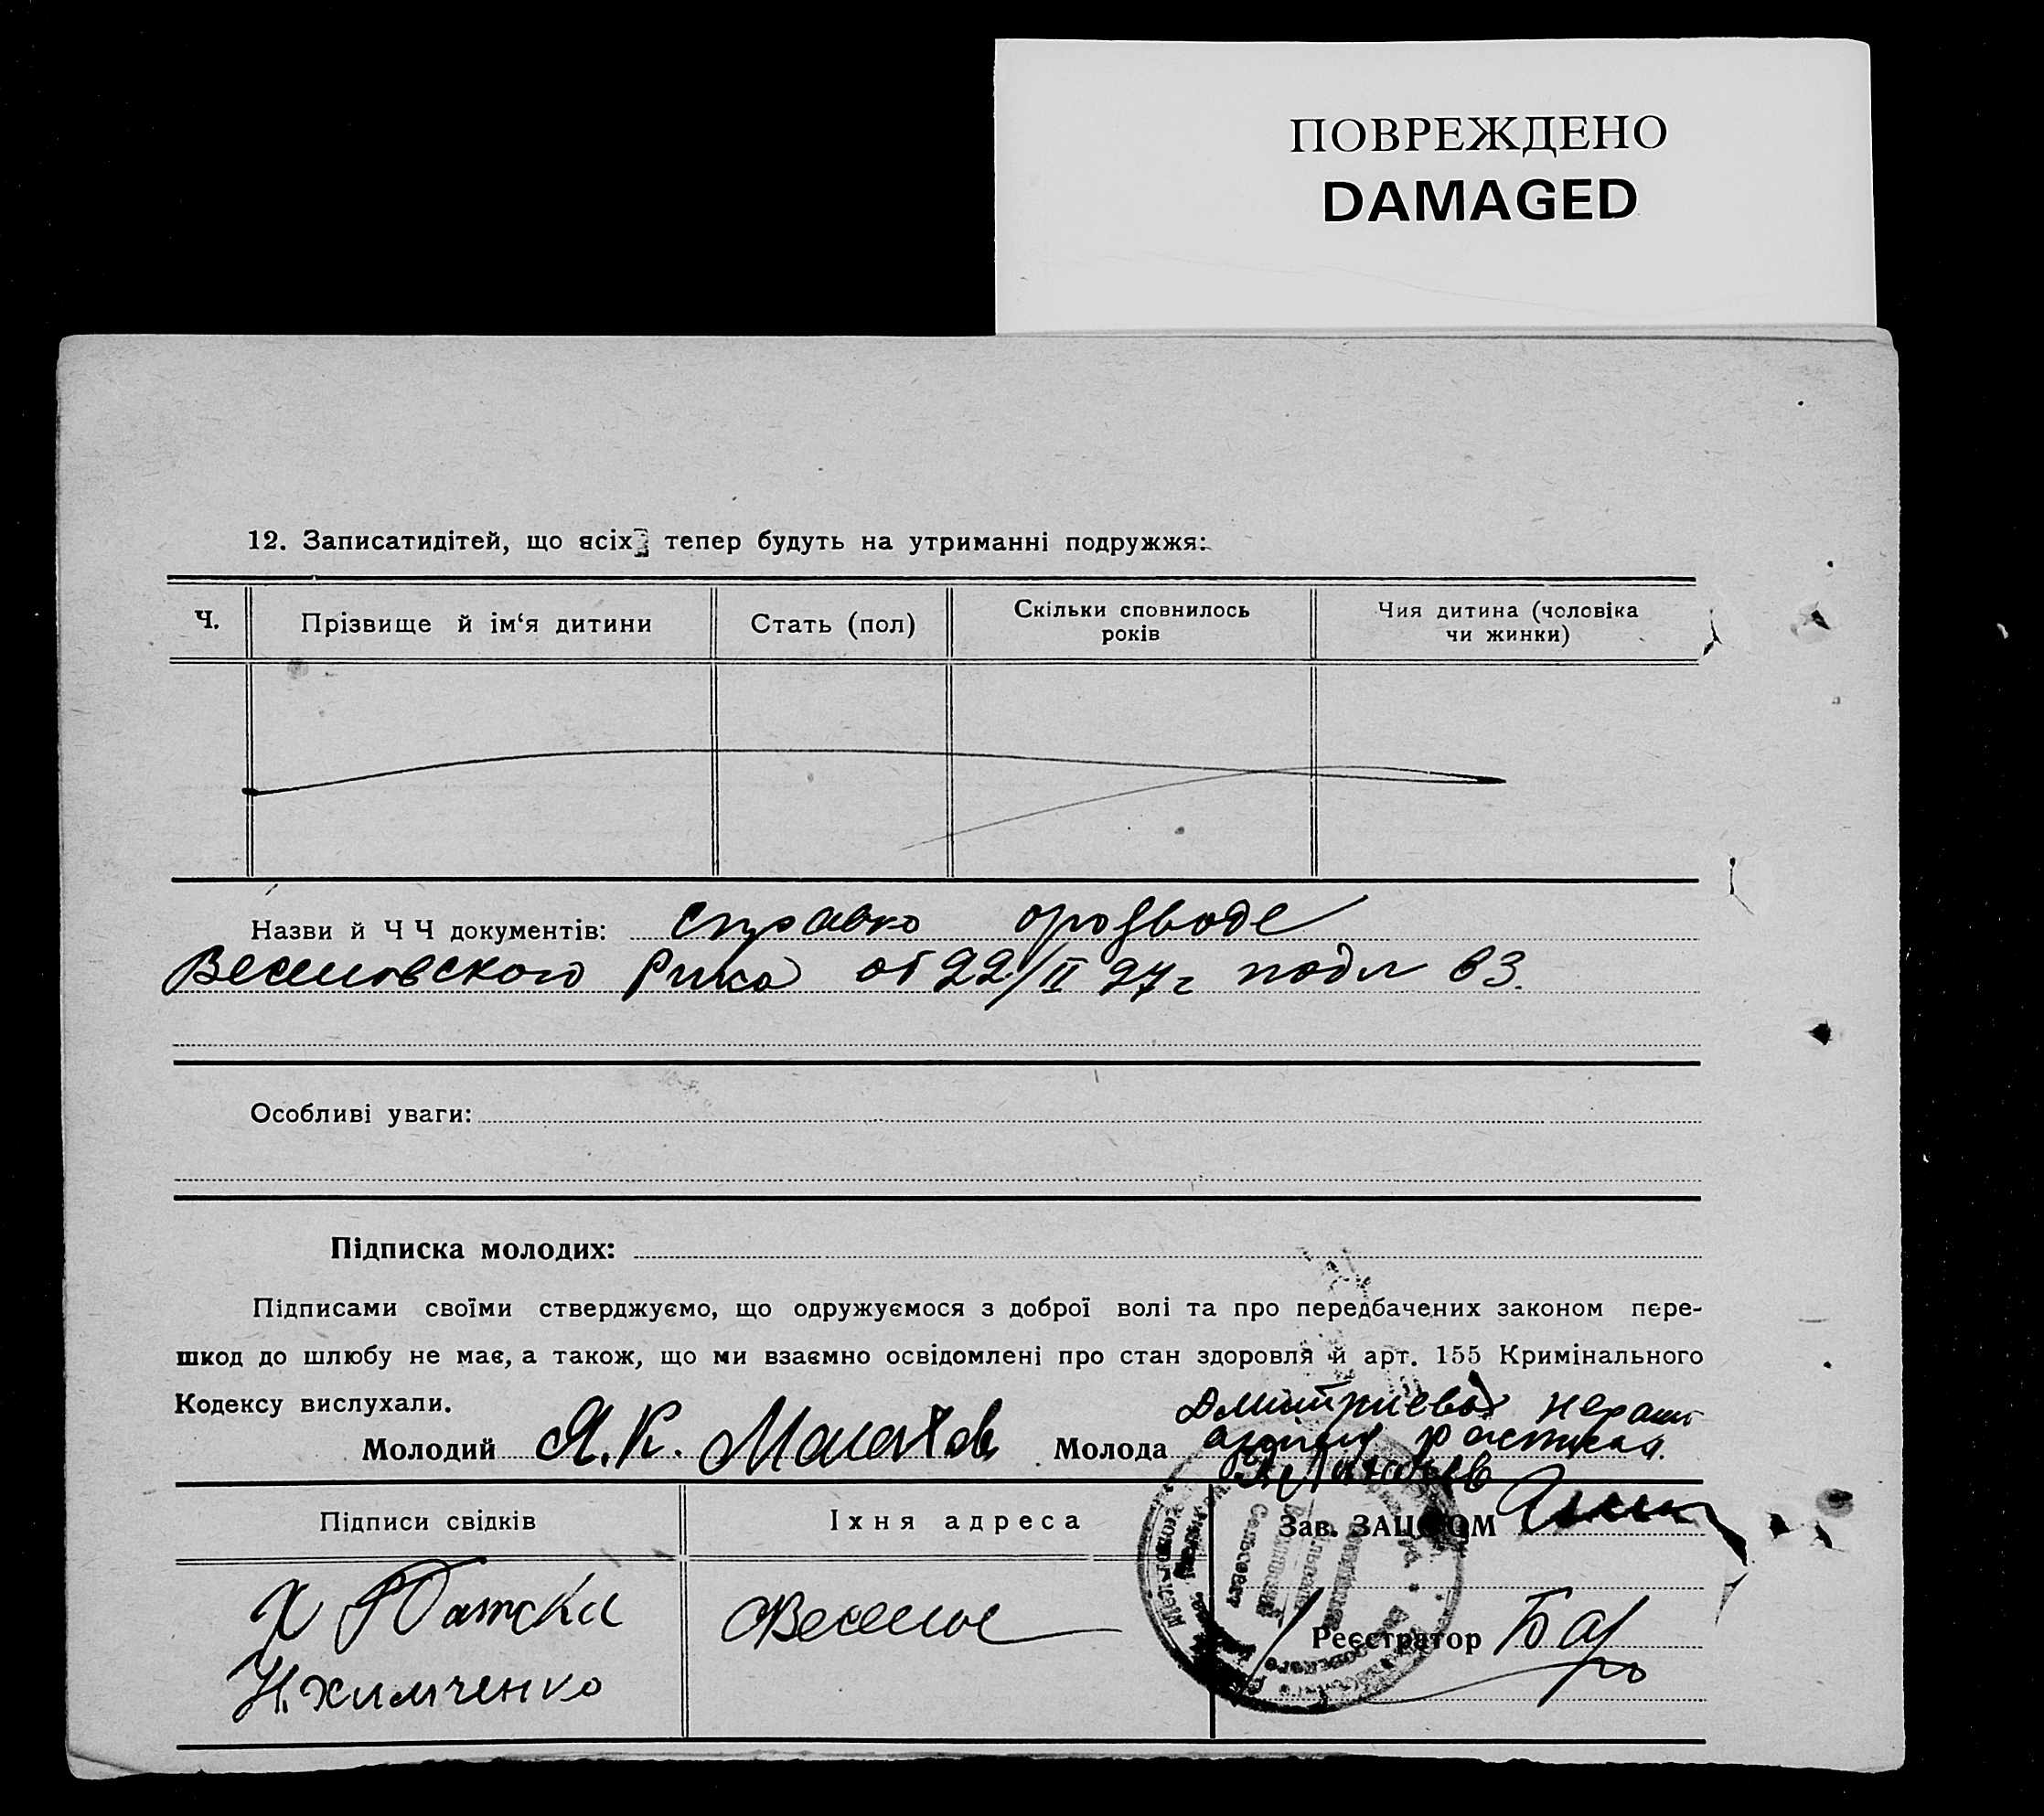 ПОВРЕЖДЕНО
DAMAGED
12. Записатидітей, що всіх тепер будуть на утриманні подружжя:
Ч.
Прізвище й ім‘я дитини
Стать (пол)
Скільки сповнилось
років
Чия дитина (чоловіка
чи жинки)
Назви й Ч Ч документів: справка оразводе
Веселовского Рика от 22/II 27 г
Особливі уваги:
Підписка молодих:
Підписами своїми стверджуємо, що одружуємося з доброї волі та про передбачених законом пере-
шкод до шлюбу не має, а також, що ми взаємно освідомлені про стан здоровля й арт. 155 Кримінального
Кодексу вислухали.
Молодий Я. К.
Молода Дмитриева
Підписи свідків
Їхня адреса
Зав. ЗАЦСОМ
Веселое
Н. Химченко
Реєстратор